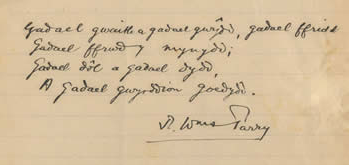 Gadael gwaith a gadael gwŷdd, gadael ffridd
Gadael ffrwd y mynydd;
Gadael dôl a gadael dydd,
A gadael gwyrddion goedydd.
R. Wms Parry